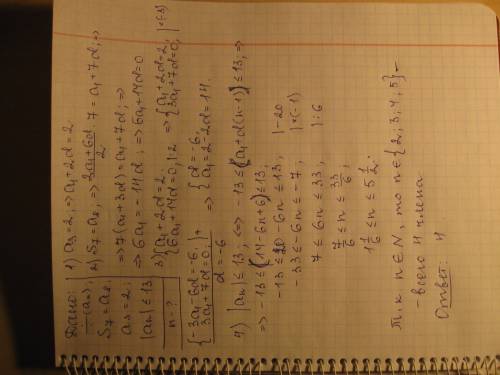 Дано:
÷(aₙ),
S₇ = a₈,
a₃ = 2;
|aₙ| ≤ 13
n - ?
1) a₃ = 2, ⇒ a₁ + 2d = 2
2) S₇ = a₈, ⇒ (2a₁ + 6d)/2 · 7 = a₁ + 7d, ⇒
⇒ 7(a₁ + 3d) = a₁ + 7d; ⇒
⇒ 6a₁ = -14d; ⇒ 6a₁ + 14d = 0
3) { a₁ + 2d = 2, 6a₁ + 14d = 0, |:2 ⇒ { a₁ + 2d = 2, |×(-3) 3a₁ + 7d = 0,
{ -3a₁ - 6d = -6, 3a₁ + 7d = 0; |+ ⇒ { d = -6; a₁ = 2 - 2d = 14.
d = -6
4) |aₙ| ≤ 13; ⇔ -13 ≤ (a₁ + d(n-1)) ≤ 13, ⇒
⇒ -13 ≤ (14 - 6n + 6) ≤ 13,
-13 ≤ 20 - 6n ≤ 13, |-20
-33 ≤ -6n ≤ -7, |×(-1)
7 ≤ 6n ≤ 33, |:6
7/6 ≤ n ≤ 33/6;
1 1/6 ≤ n ≤ 5 1/2.
Т.к. n ∈ N, то n ∈ {2; 3; 4; 5} -
- всего 4 члена
Ответ: 4